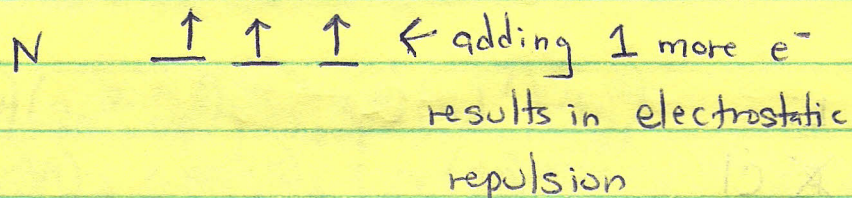 N ↑ ↑ ↑ ← adding 1 more e⁻
results in electrostatic
repulsion